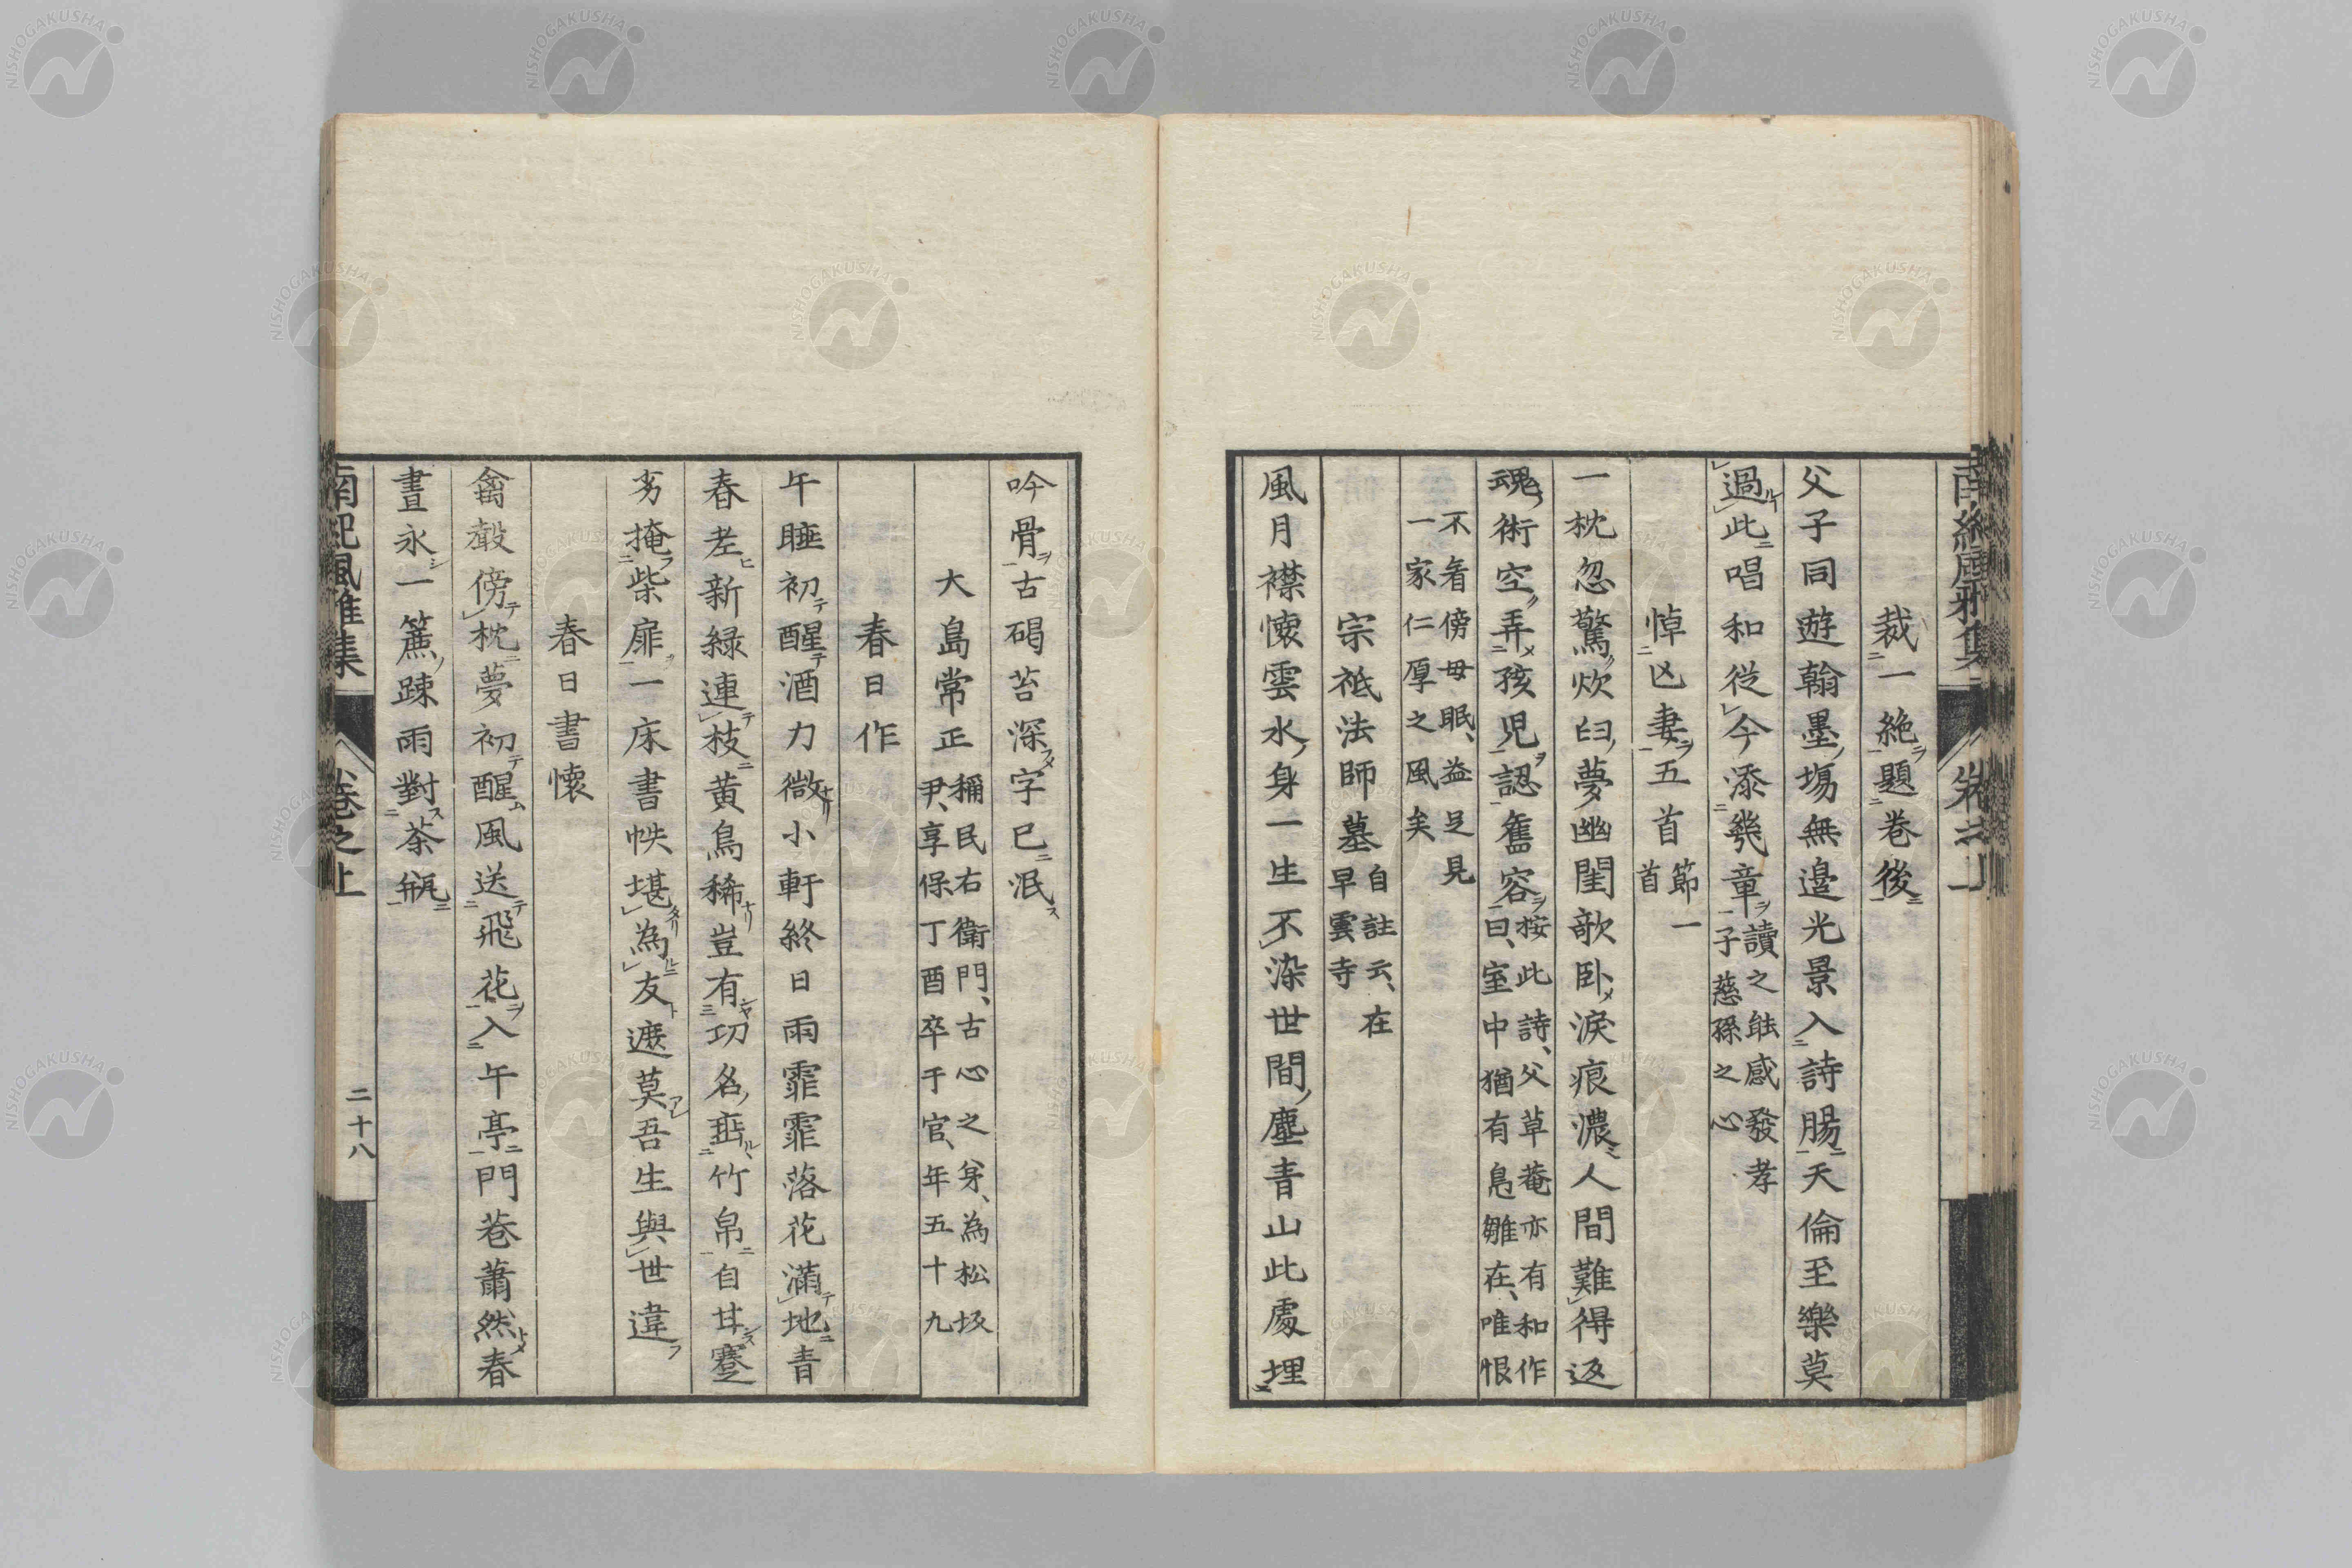 裁一絶題巻後
父子同遊翰墨場無邊光景入詩腸天倫至樂莫
過此唱和從今添幾章讀之能感發孝子慈孫之心
悼凶妻五首節一首
一枕忽驚炊臼夢幽閨歌臥淚痕濃人間難得返
魂術空弄孩兒認舊容按此詩、父草菴亦有和作曰、室中猶有息雛在、唯恨
不看傍母眠、益足見一家仁厚之風矣
宗祇法師墓自註云、在早雲寺
風月襟懐雲水身一生不染世間塵青山此處埋
吟骨古碣苔深字已泯
大島常正稱民右衛門、古心之弟、為松坂尹、享保丁酉卒于官、年五十九
春日作
午睡初醒酒力微小軒終日雨霏霏落花滿地青
春老新緑連枝黄鳥稀豈有功名垂竹帛自甘蹇
劣掩柴扉一床書帙堪為友遮莫吾生與世違
春日書懐
禽聲傍枕夢初醒風送飛花入午亭門巷蕭然春
晝永一簾踈雨對茶瓶
南紀風雅集 巻之上 二十八
NISHOGAKUSHA